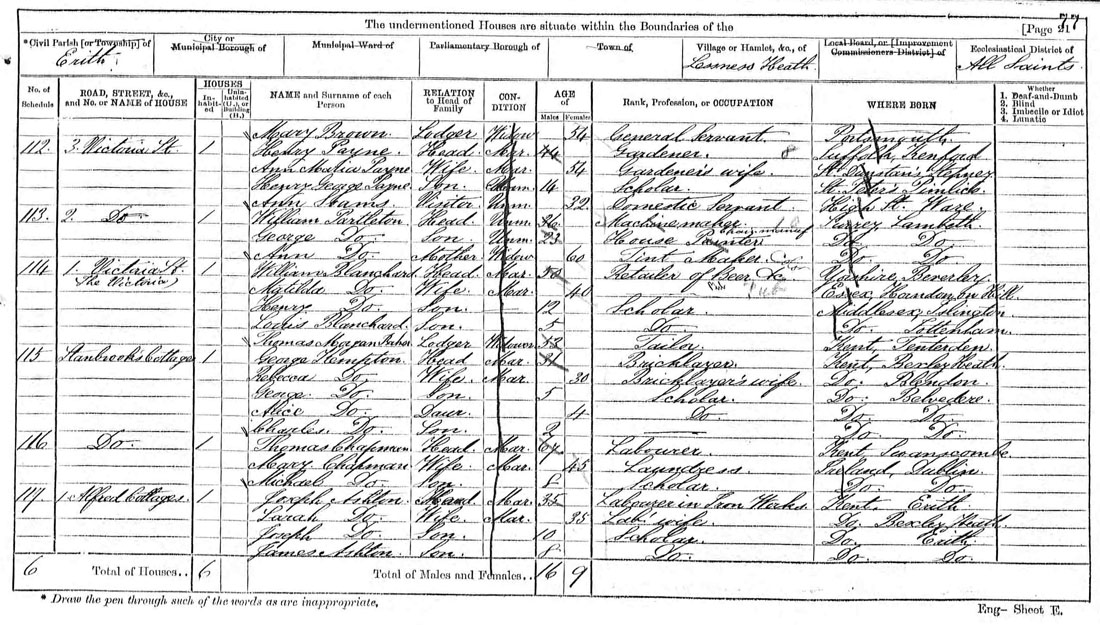 The undermentioned Houses are situate within the Boundaries of the
77
[Page 21
*Civil Parish [or Township] of Erith
City or Municipal Borough of
Municipal Ward of
Parliamentary Borough of
Town of
Village or Hamlet, &c., of Lesness Heath
Local Board, or [Improvement Commissioners District] of
Ecclesiastical District of All Saints
No. of Schedule
ROAD, STREET, &c., and No. or NAME of HOUSE
HOUSES
Inhabited
Uninhabited (U.), or Building (B.)
NAME and Surname of each Person
RELATION to Head of Family
CONDITION
AGE of
Males
Females
Rank, Profession, or OCCUPATION
WHERE BORN
Whether 1. Deaf-and-Dumb 2. Blind 3. Imbecile or Idiot 4. Lunatic
Mary Brown Lodger Widow 54 General Servant Portsmouth
112 3 Victoria St. 1 Henry Payne Head Mar. 44 Gardener Suffolk
Ann Maria Payne Wife Mar. 54 Gardener's wife St. Dunstan's Stepney
Henry George Payne Son Unm. 14 Scholar St. Peters Pimlico
Ann Unm. 32 Domestic Servant High St. Ware
113 2 Do. 1 William Partleton Head Unm. Machine maker Surrey Lambeth
George Do. Son Unm. 23 House Painter Do. Do.
Ann Do. Mother Widow 60 Tint Maker Do. Do.
114 1 Victoria St. (The Victoria) 1 William Blanchard Head Mar. Retailer of Beer &c Yorkshire Beverley
Matilda Do. Wife Mar. 40 Essex, Horndon on Hill
Henry Do. Son 12 Scholar Middlesex Islington
Louis Blanchard Son 5 Do. Do. Tottenham
Thomas Morgan Lodger Widower Tailor Kent Tenterden
115 Stanbrooks Cottages 1 George Hempton Head Mar. 31 Bricklayer Kent, Bexley Heath
Rebecca Do. Wife Mar. 30 Bricklayer's wife Do. Blendon
George Do. Son 5 Scholar Do. Belvedere
Alice Do. Daur. 4 Do. Do. Do.
Charles Do. Son 2 Do. Do.
116 Do. 1 Thomas Chapman Head Mar. 67 Labourer Kent, Swanscombe
Mary Chapman Wife Mar. 45 Laundress Ireland, Dublin
Michael Do. Son 8 Scholar Do. Do.
117 1 Alfred Cottages 1 Joseph Ashton Head Mar. 35 Labourer in Iron Works Kent Erith
Sarah Do. Wife Mar. 35 Lab. wife Do. Bexley Heath
Joseph Do. Son 10 Scholar Do. Erith
James Ashton Son 8 Do. Do. Do.
6 Total of Houses.. 6 Total of Males and Females.. 16 9
* Draw the pen through such of the words as are inappropriate.
Eng— Sheet E.